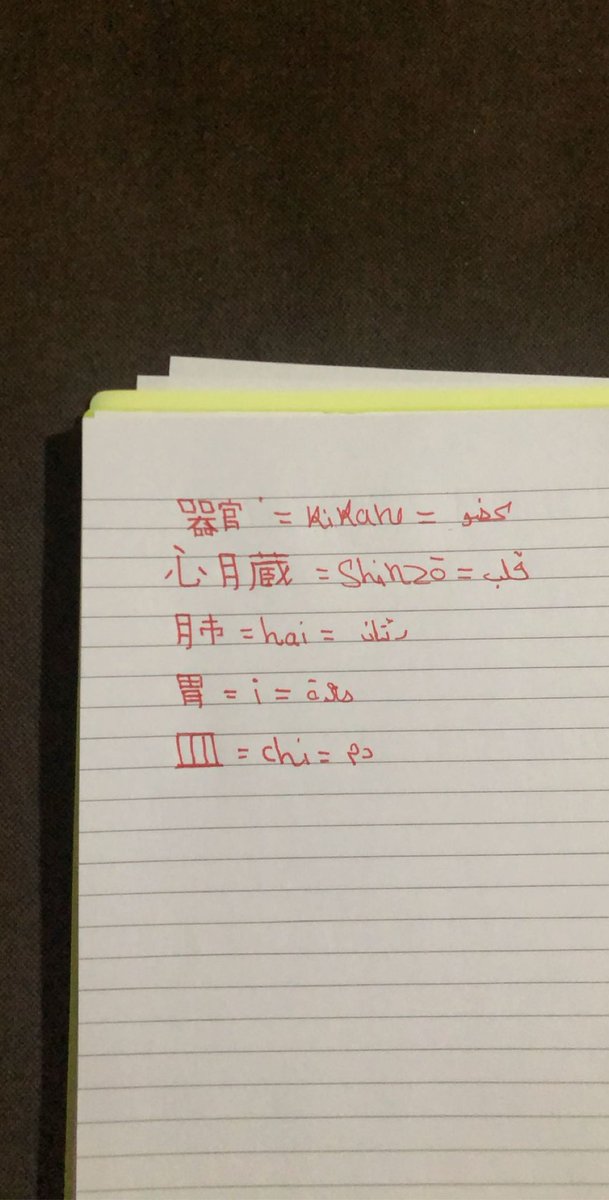 器官 = Kikan = عضو
心臓 = Shinzō = قلب
肺 = hai = رئتان
胃 = i = معدة
皿 = chi = دم